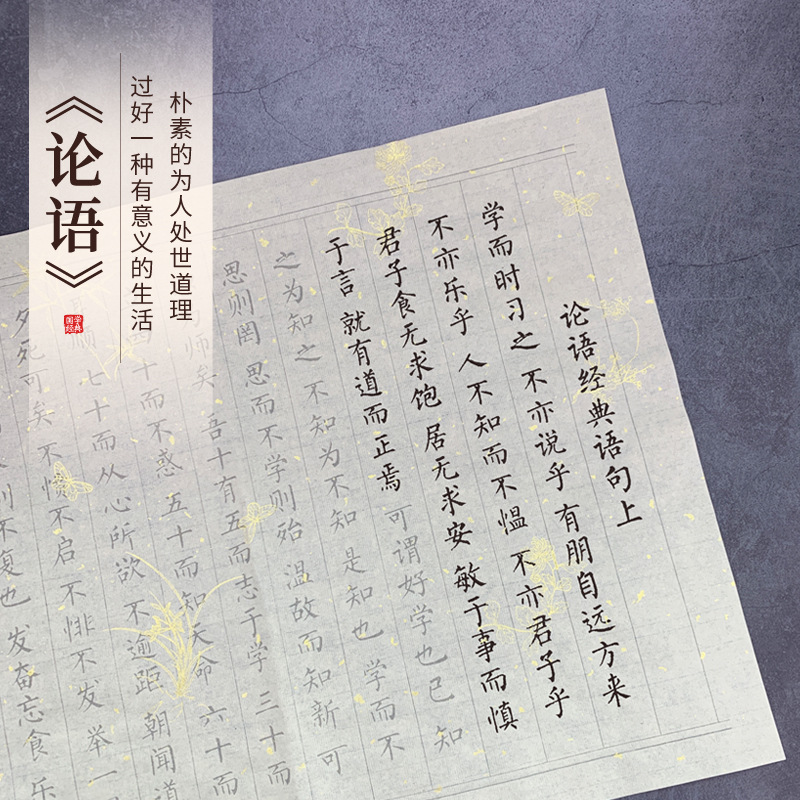 朴素的为人处世道理
过好一种有意义的生活
《论语》
国学
经典
论语经典语句上
学而时习之 不亦说乎 有朋自远方来
不亦乐乎 人不知而不愠 不亦君子乎
君子食无求饱 居无求安 敏于事而慎
于言 就有道而正焉 可谓好学也已 知
之为知之 不知为不知 是知也 学而不
思则罔 思而不学则殆 温故而知新 可
师矣 吾十有五而志于学 三十而
四十而不惑 五十而知天命 六十而
顺 七十而从心所欲 不逾距 朝闻道
夕死可矣 不愤不启 不悱不发 举一
则不复也 发奋忘食 乐